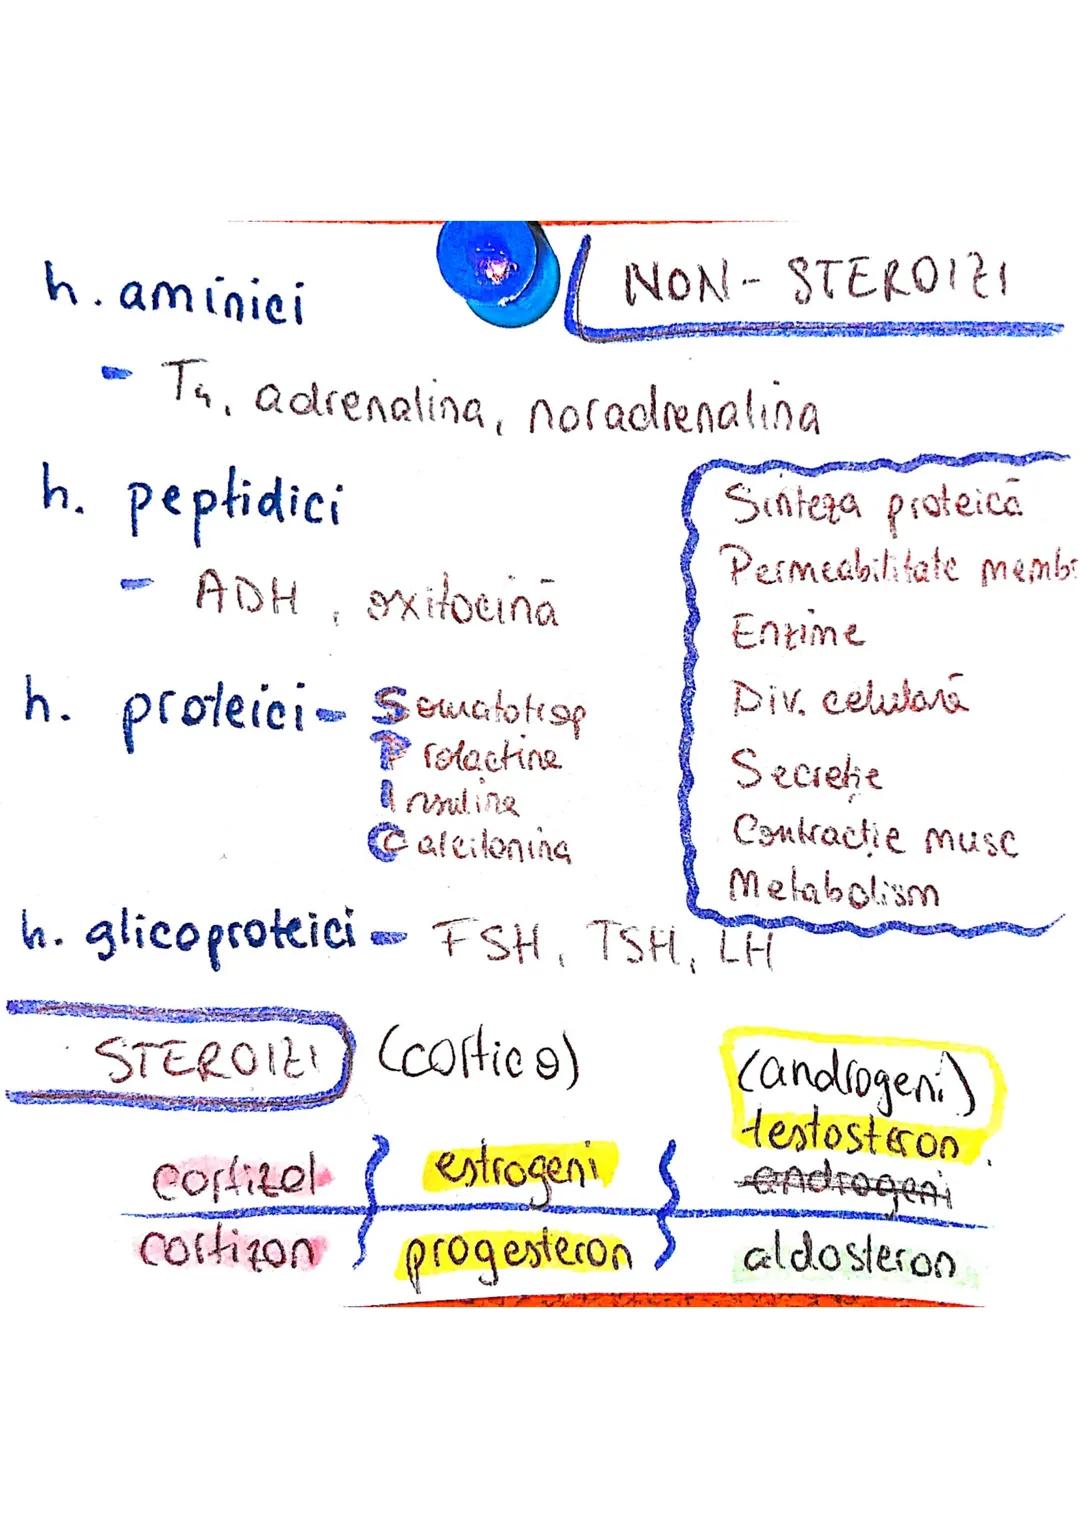 h. aminici
NON-STEROIZI
- T4, adrenalina, noradrenalina
h. peptidici
- ADH, oxitocină
h. proteici - Somatotrop
Prolactina
Insulina
Calcitonina
Sinteza proteică
Permeabilitate membr
Enzime
Div. celulară
Secreție
Contracție musc
Metabolism
h. glicoproteici - FSH, TSH, LH
STEROIZI (cortico)
(androgeni)
testosteron
androgeni
cortizol
estrogeni
cortizon
progesteron
aldosteron